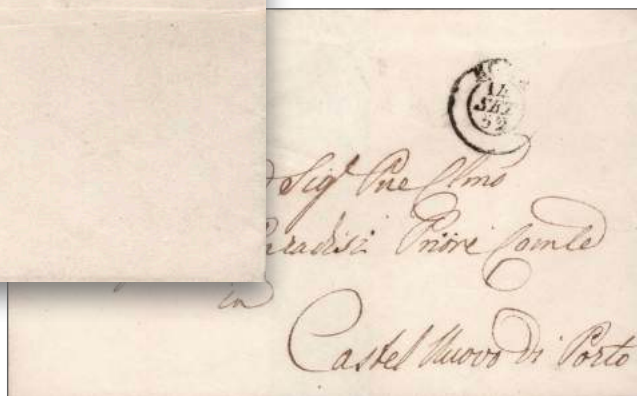 14
SET
52
Sigr Pne Clmo
Paradisi Priore Comle
in
Castel Nuovo di Porto